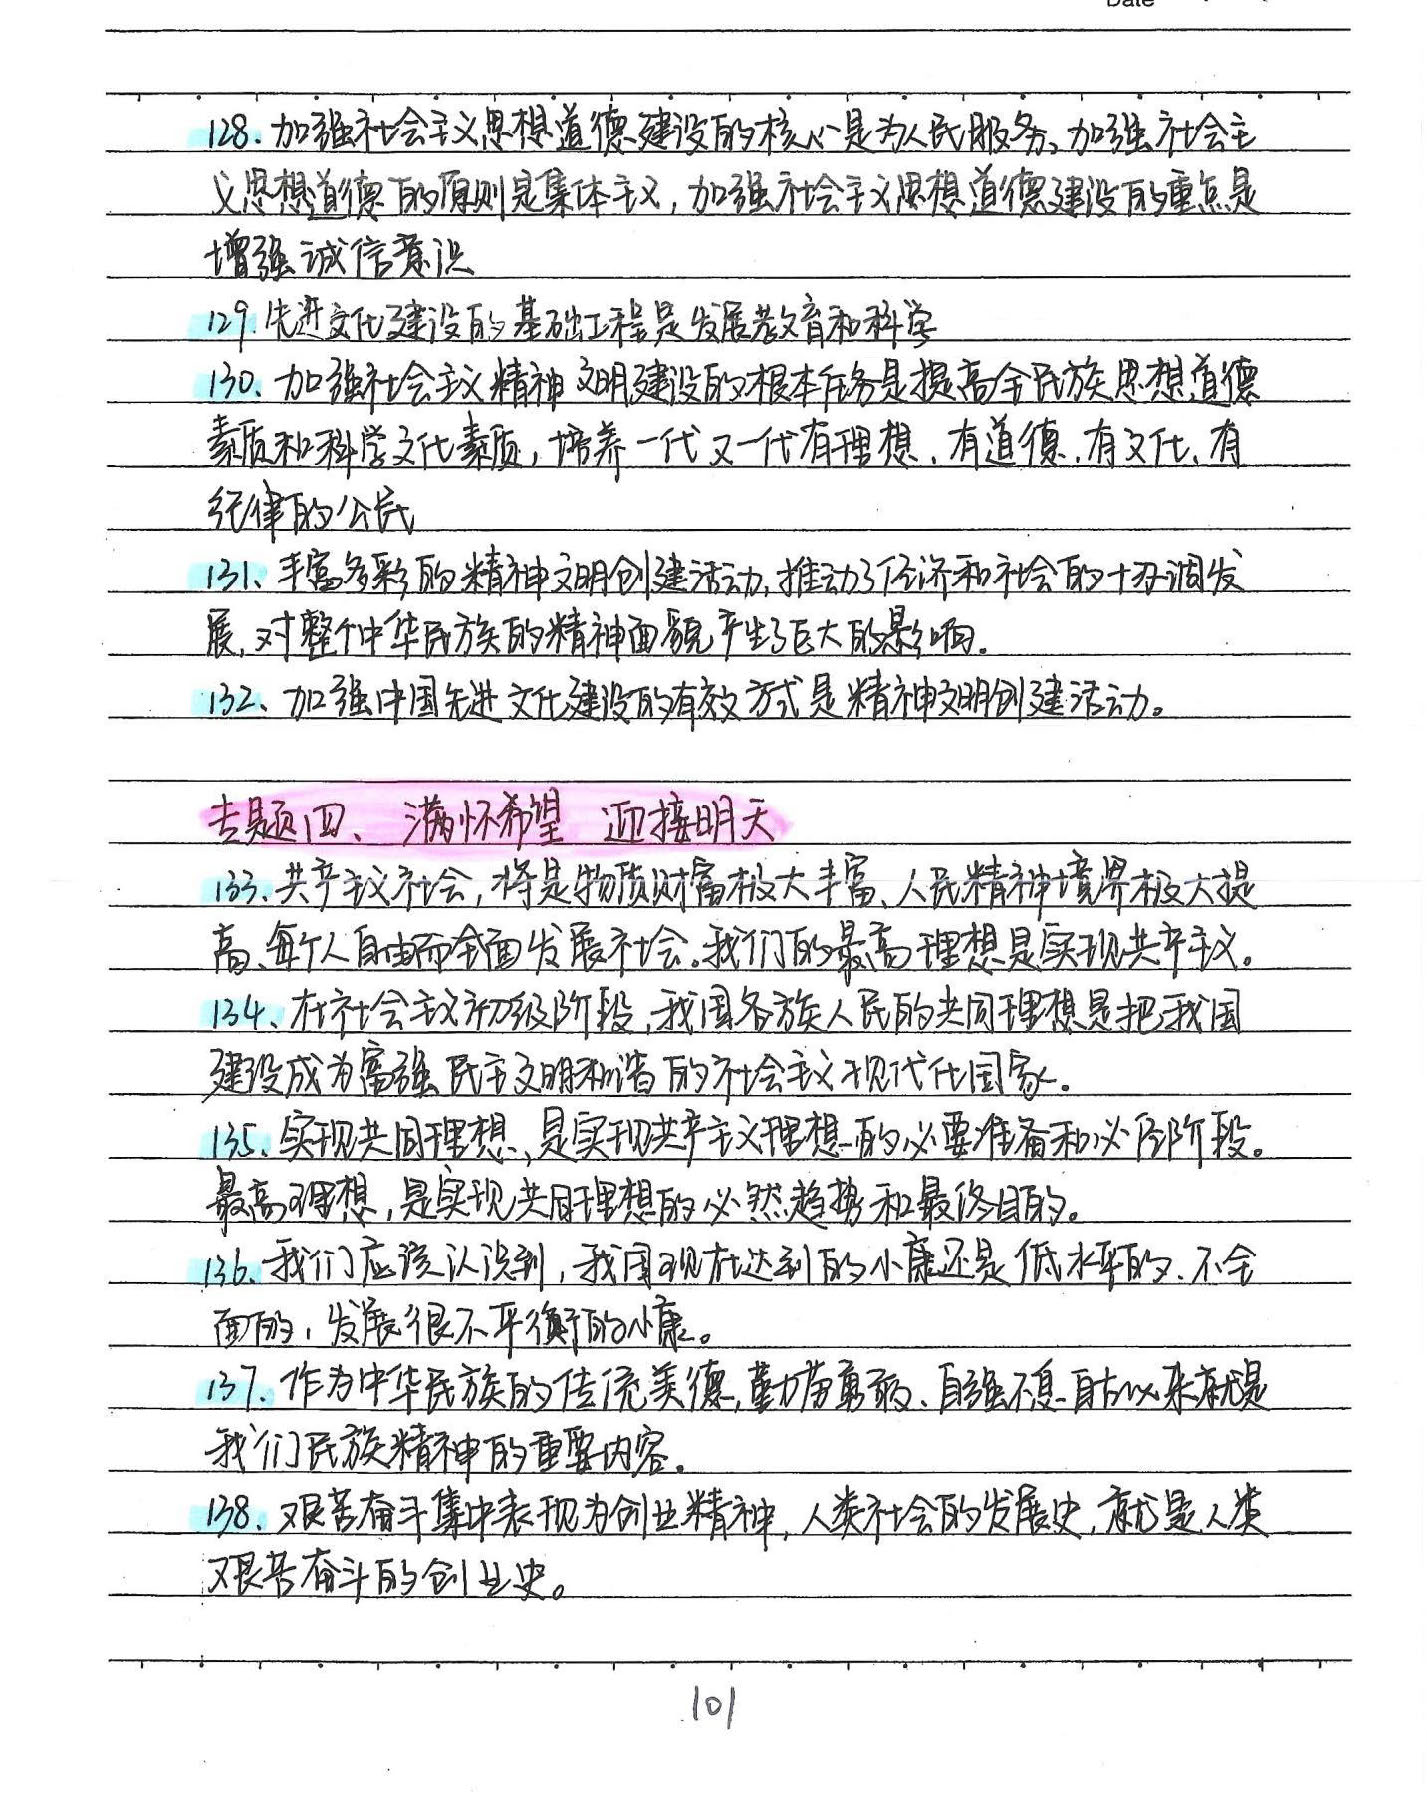 Date
128、加强社会主义思想道德建设的核心是为人民服务、加强社会主
义思想道德的原则是集体主义，加强社会主义思想道德建设的重点是
增强诚信意识
129、先进文化建设的基础工程是发展教育和科学
130、加强社会主义精神文明建设的根本任务是提高全民族思想道德
素质和科学文化素质，培养一代又一代有理想、有道德、有文化、有
纪律的公民
131、丰富多彩的精神文明创建活动，推动了经济和社会的协调发
展，对整个中华民族的精神面貌产生了巨大的影响。
132、加强中国先进文化建设的有效方式是精神文明创建活动。
专题四、满怀希望 迎接明天
133、共产主义社会，将是物质财富极大丰富、人民精神境界极大提
高、每个人自由而全面发展社会。我们的最高理想是实现共产主义。
134、在社会主义初级阶段，我国各族人民的共同理想是把我国
建设成为富强民主文明和谐的社会主义现代化国家。
135、实现共同理想，是实现共产主义理想的必要准备和必经阶段。
最高理想，是实现共同理想的必然趋势和最终目的。
136、我们应该认识到，我国现在达到的小康还是低水平的、不全
面的，发展很不平衡的小康。
137、作为中华民族的传统美德，勤劳勇敢、自强不息自古以来就是
我们民族精神的重要内容。
138、艰苦奋斗集中表现为创业精神，人类社会的发展史，就是人类
艰苦奋斗的创业史。
101